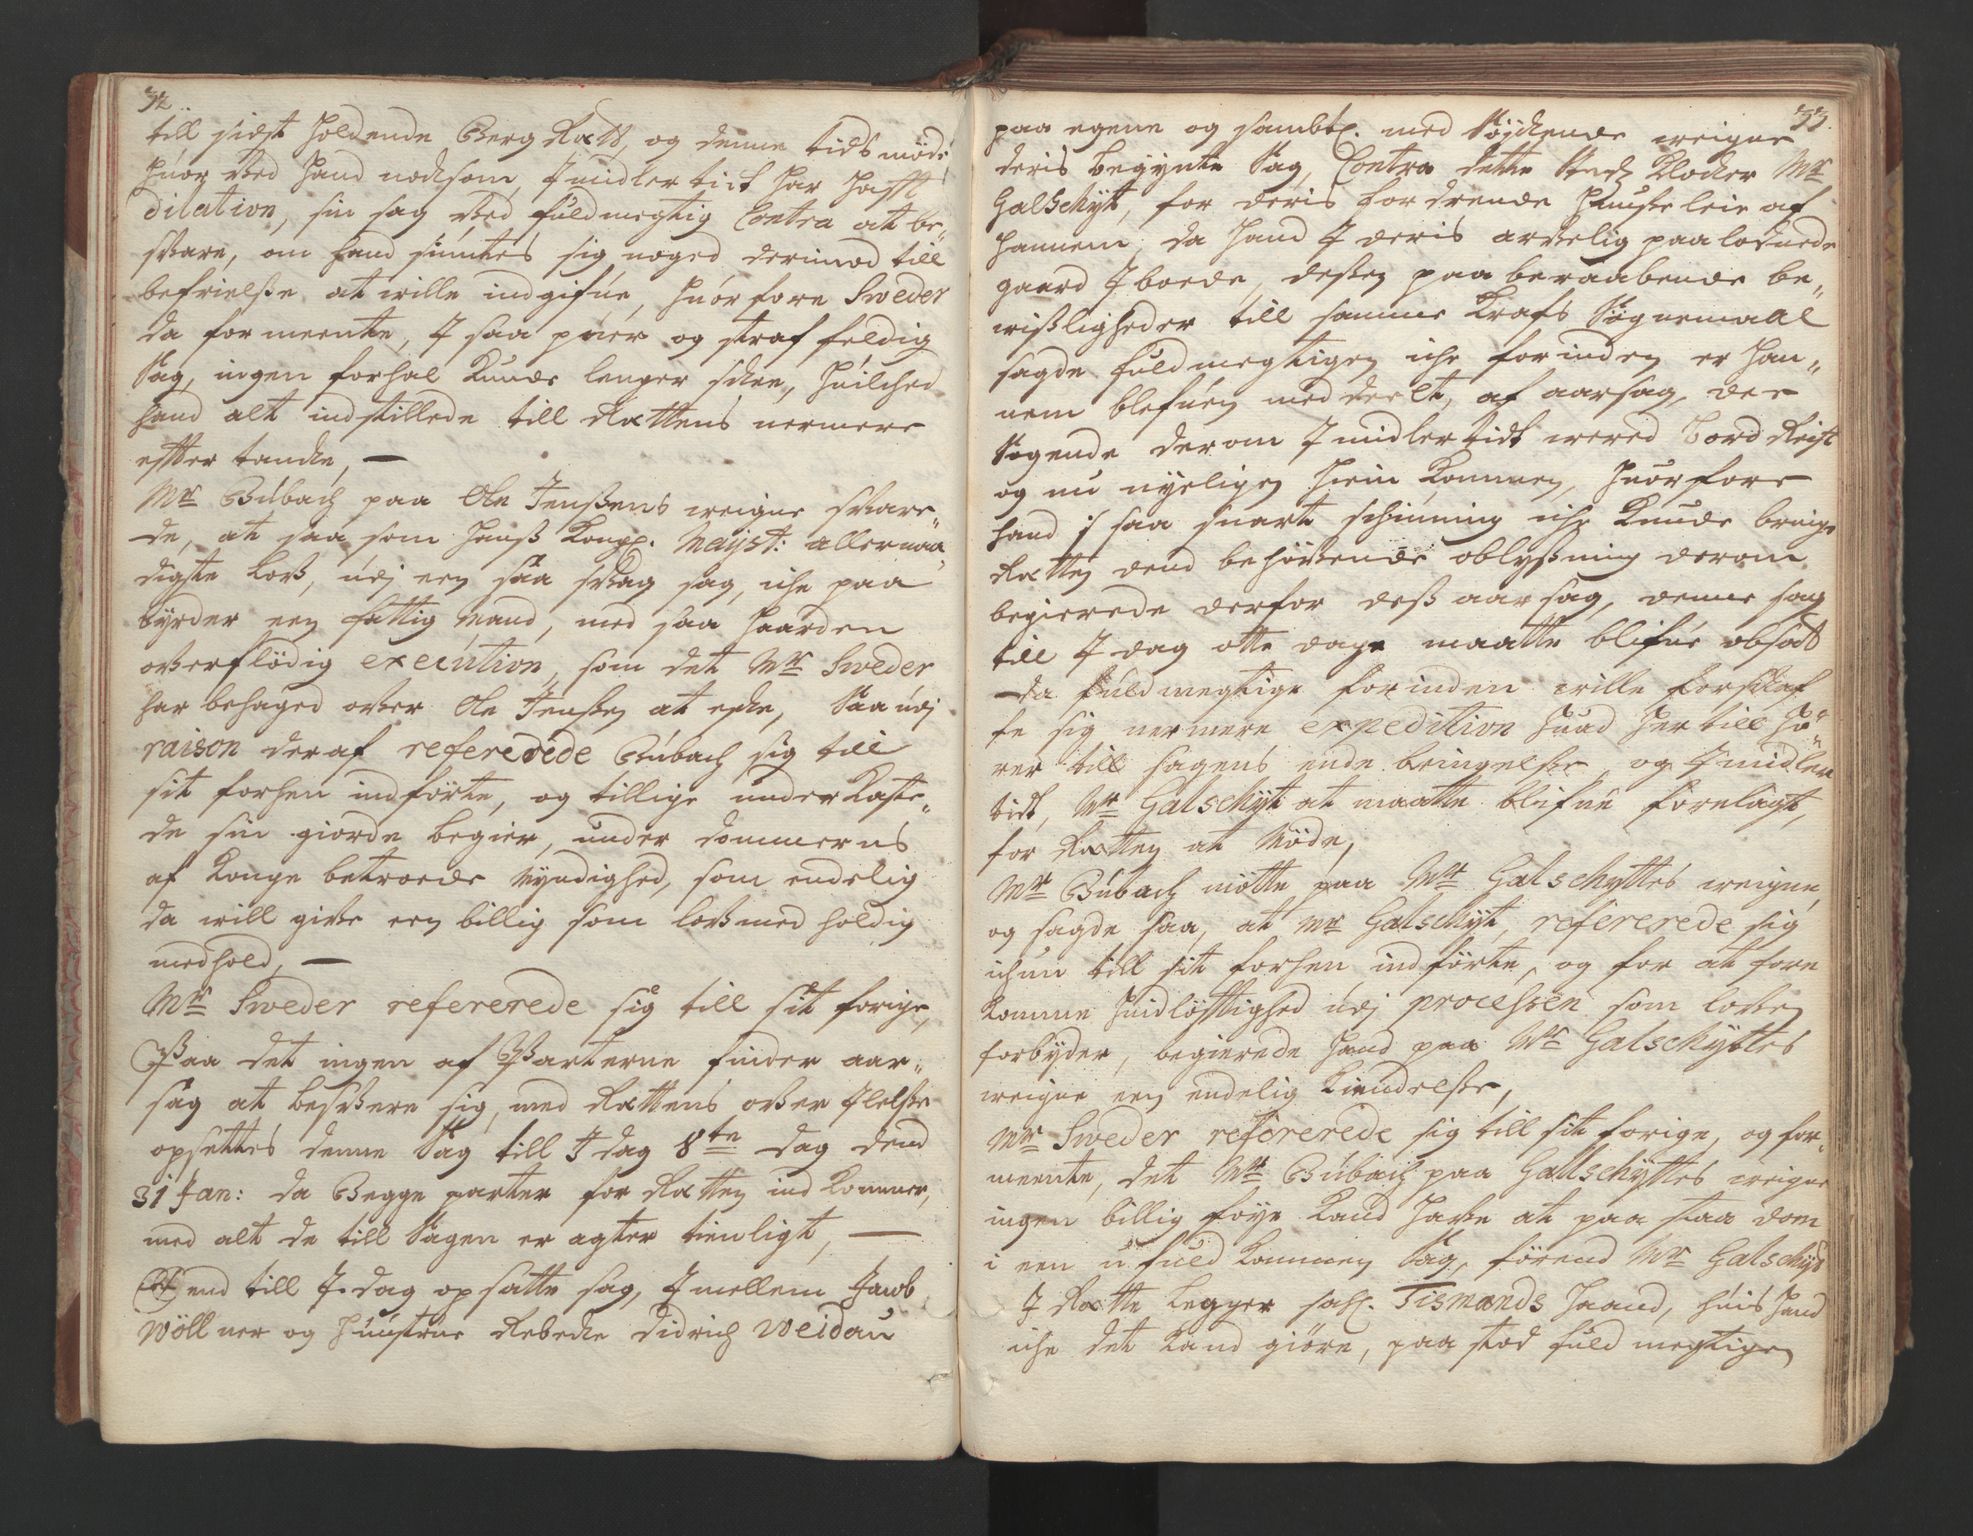 32
till sidst holdende Berg Rætt, og denne tids møde
huor Ved hand noksom, Imidlertidt har hafft
dilation, sin sag Ved fuldmegtig Contra at be„
svare, om hand siuntes sig noged derimod till
befrielse at wille indgifue, huorfore Sweder
da formeente, I saa puer og straf feldig
Sag, ingen forhal Kunde lenger skee, huilched
hand alt indstillede till Rættens nermere
effter tancke, —
Mr Bubach paa Ole Jenssens weigne svare„
de, at saa som hans Kongl. Mayst: allernaa„
digste lov, udj een saa svag sag, iche paa
byrder een fattig mand, med saa haarden
overflödig execution, som det Mr Sweder
har behaged over Ole Jenssen at eske, Saa udj
raison deraf refererede Bubach sig till
sit forhen indførte, og tillige underkaste„
de sin giorde begier, under dommerns
af Konge betroede Myndighed, som endelig
da will give een billig som lovmedholdig
medhold, —
Mr Sweder refererede sig till sit forige,
Paa det ingen af Parterne finder aar„
sag at besvere sig, med Rættens over Ilelse
opsettes denne Sag till I dag 8te dag dend
31 Jan: da Begge parter for Rætten ind kommer,
med alt de till Sagen er agter tienligt, —
Dend till I dag opsatte sag, Imellem Jacob
Wöllner og hustrue Rebecke Didrich Weidau
33.
paa egene og sambtl. med Søskende weigne
deris begynte Sag, Contra dette Stedz Klocker Mr
Galschyt, for deris fordrende Huuseleie af
hannem, da hand I deris arvelig paalodnede
gaard I boede, dessen paaberaabende be„
wisligheder till samme Krafs Søgnemaal
sagde fuldmegtigen iche forinden er han„
nem blefuen meddeelt, af aarsag, de
Søgende derom Imidlertidt wered bord Reist
og nu nyeligen hiem kommen, huorfore
hand i saa snart schinning iche Kunde bringe
Rætten dend behøvende oblysning derom
begierede derfor dess aarsag, denne sag
till I dag otte dage maatte blifue obsadt
da fuldmegtige forinden wille forskaf
fe sig nermere expedition huad her till hø„
rer till sagens ende bringelse, og Imidler
tidt, Mr Galschyt at maatte blifue forelagt,
for Rætten at Møde,
Mr Bubach møtte paa Mr Galschyttes weigne,
og sagde saa, at Mr Galschyt, refererede sig
ickun till sit forhen indførte, og for at fore
komme Huidløfftighed udj processen som loven
forbyder, begierede hand paa Mr Galschyttes
weigne een endelig kiendelse,
Mr Sweder refererede sig till sit forige, og for„
meente, det Mr Bubach paa Gallschyttes weigne
ingen billig føye kand have at paa staa dom
i een ufuldkommen Sag, førend Mr Galschyt
I Rætte legger sahl. Tismands haand, huis hand
iche det kand giøre, paa stod fuldmegtigen